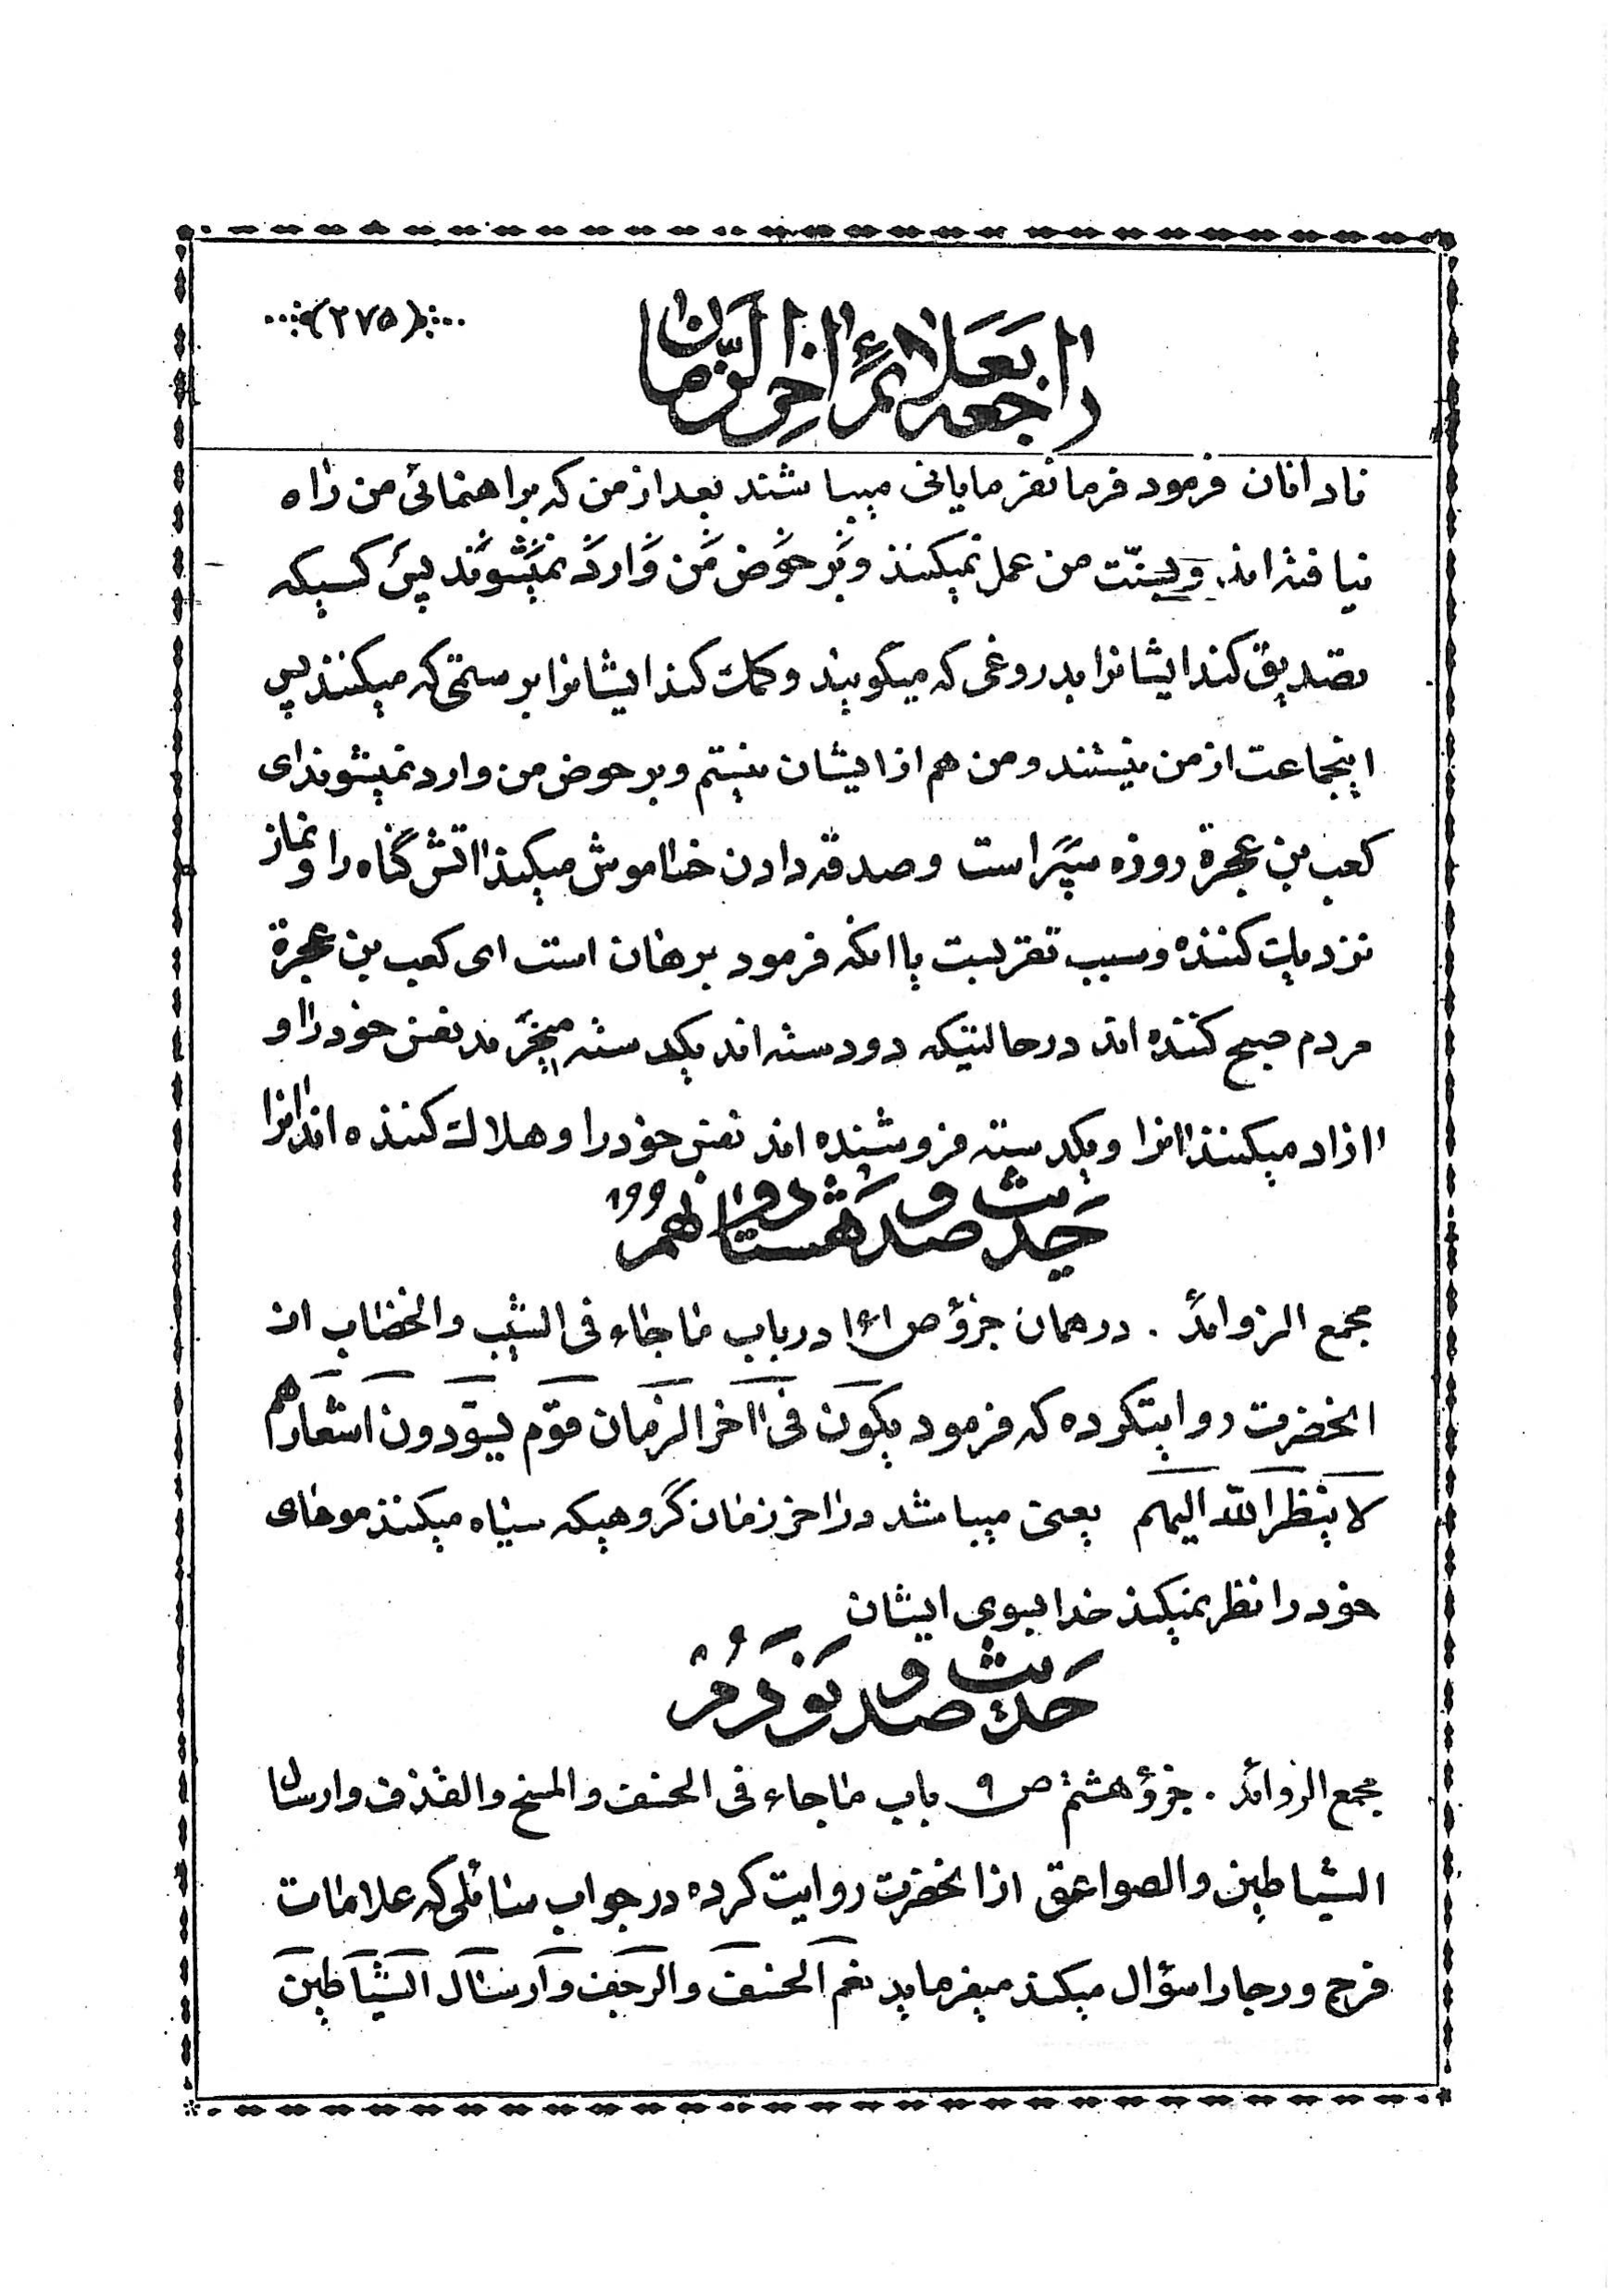 راجعه بعلائم اخر الزمان
(۲۷۵)
نادانان فرمود فرمانفرمایانی میباشند بعد از من که براهنمائی من راه
نیافته اند. وبسنّت من عمل نمیکنند وبَر حَوض مَن وَارِد نمیَشوَند پسَ کسیکه
تصدیق کند ایشانرا بدروغی که میگویند وکمک کند ایشانرا بر ستمی که میکنند پس
اینجماعت از من نیستند ومن هم از ایشان نیستم وبر حوض من وارد نمیشوند ای
کعب بن عجرة روزه سپَر است وصدقه دادن خاموش میکند اتش گناه را ونماز
نزدیک کننده وسبب تقربست یا انکه فرمود برهان است ای کعب بن عجرة
مردم صبح کننده اند در حالتیکه دو دسته اند یکدسته میخرَند نفس خود را و
ازاد میکنند انرا ویکدسته فروشنده اند نفس خود را وهلاک کننده اند انرا
حَدیث صد و هَشتاد و نهمُ ۱۹۹
مجمع الزوائد . در همان جزؤ ص ۱۶۱ در باب ما جاء فی الشیب والخضاب از
انحضرت روایتکرده که فرمود یکوَن فی اخر الزمان قوَم یسوَدون اشعارَهم
لا ینظر اللّه الیهم یعنی میباشد در اخر زمان گروهیکه سیاه میکنند موهای
خود را نظر نمیکند خدا بسوی ایشان
حَدیث صد و نَودَمُ
مجمع الزوائد . جزؤ هشتم ص ۹ باب ما جاء فی الخسف والمسخ والقذف وارسال
الشیاطین والصواعق از انحضرت روایت کرده در جواب سائلی که علامات
فرج ورجا را سؤال میکند میفرماید نعم الخسَف والرجَف وَارسَال الشَیَاطین